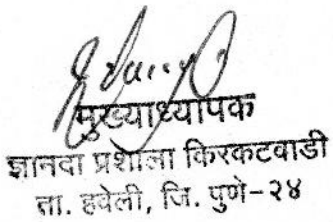 मुख्याध्यापक
ज्ञानदा प्रशाला किरकटवाडी
ता. हवेली, जि. पुणे-२४